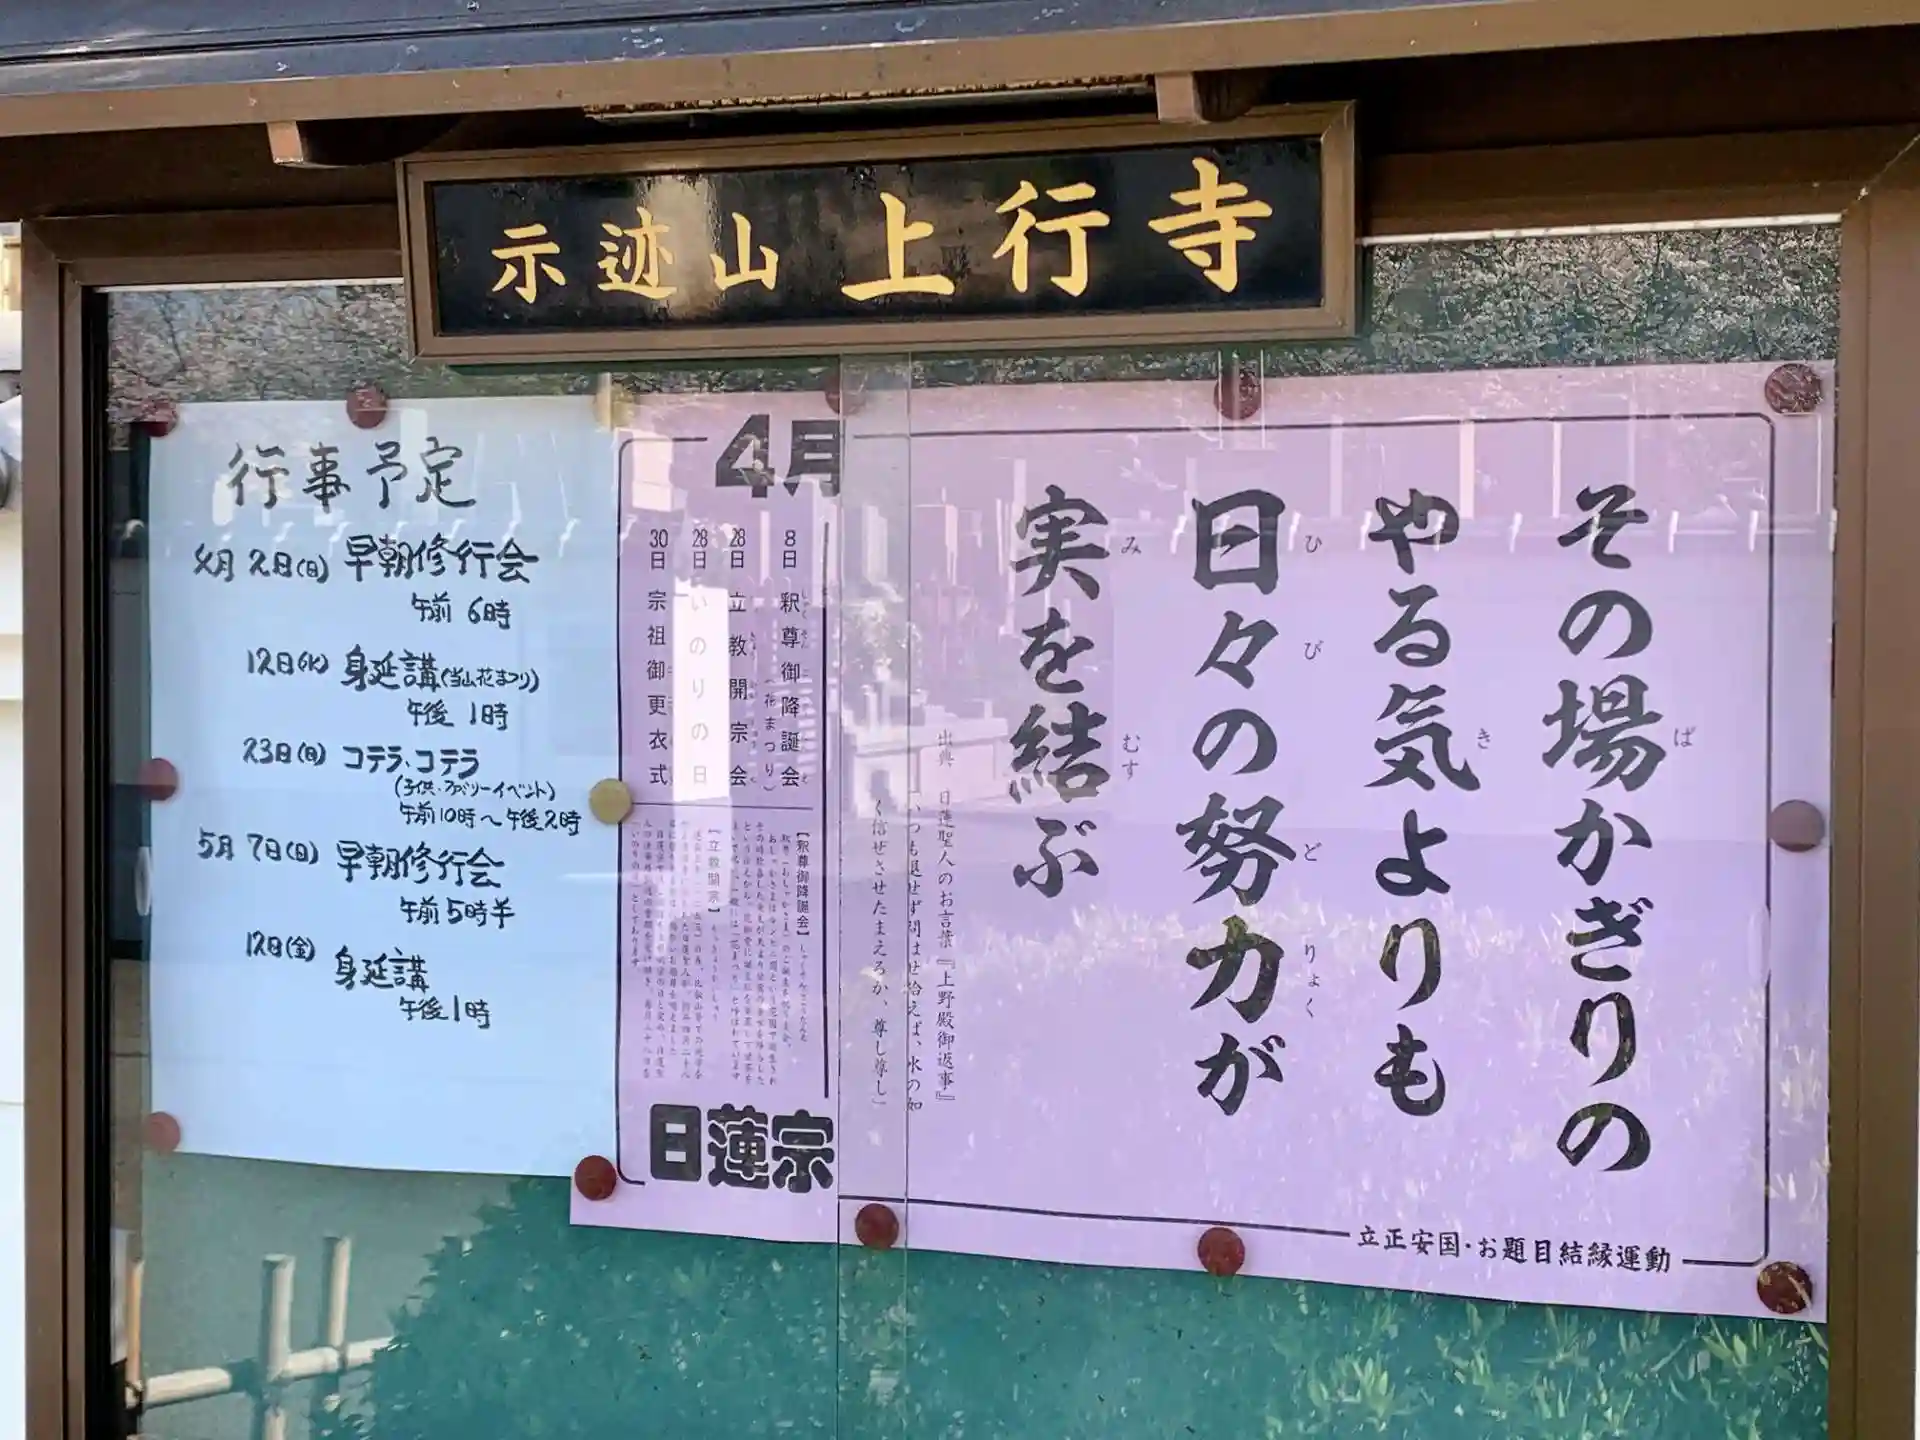 示迹山 上行寺
行事予定
4月2日(日) 早朝修行会
午前 6時
12日(水) 身延講(当山花まつり)
午後 1時
23日(日) コテラ・コテラ
(子供・ファミリーイベント)
午前10時〜午後2時
5月7日(日) 早朝修行会
午前5時半
12日(金) 身延講
午後1時
その場かぎりの
ば
やる気よりも
き
日々の努力が
ひび どりょく
実を結ぶ
み むす
出典 日蓮聖人のお言葉『上野殿御返事』
いつも退せず問はせ給えば、水の如
く信ぜさせたまえるか、尊し尊し」
4月
8日 釈尊御降誕会
(花まつり)
28日 立教開宗会
28日 いのりの日
30日 宗祖御更衣式
【釈尊御降誕会】
【立教開宗】
日蓮宗
立正安国・お題目結縁運動